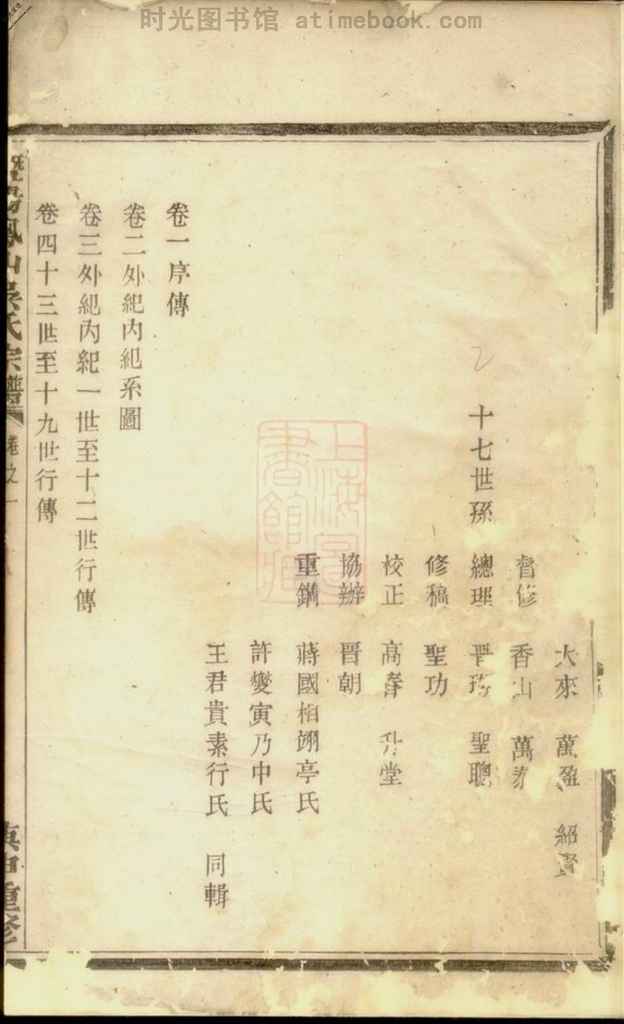 时光图书馆 atimebook.com
大來 萬盈 紹賢
督修 香山 萬泰
十七世孫 總理 聖聰
修稿 聖功
校正 高峰 升堂
協辦 晋朝
重鐫 蔣國栢翊亭氏
許燮寅乃中氏
王君貴素行氏 同輯
卷一序傳
卷二外紀內紀系圖
卷三外紀內紀一世至十二世行傳
卷四十三世至十九世行傳
暨陽鳳山吳氏宗譜 卷之一 庚申重修
上海圖書館藏